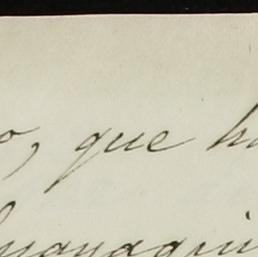 o, que h
uayaqui